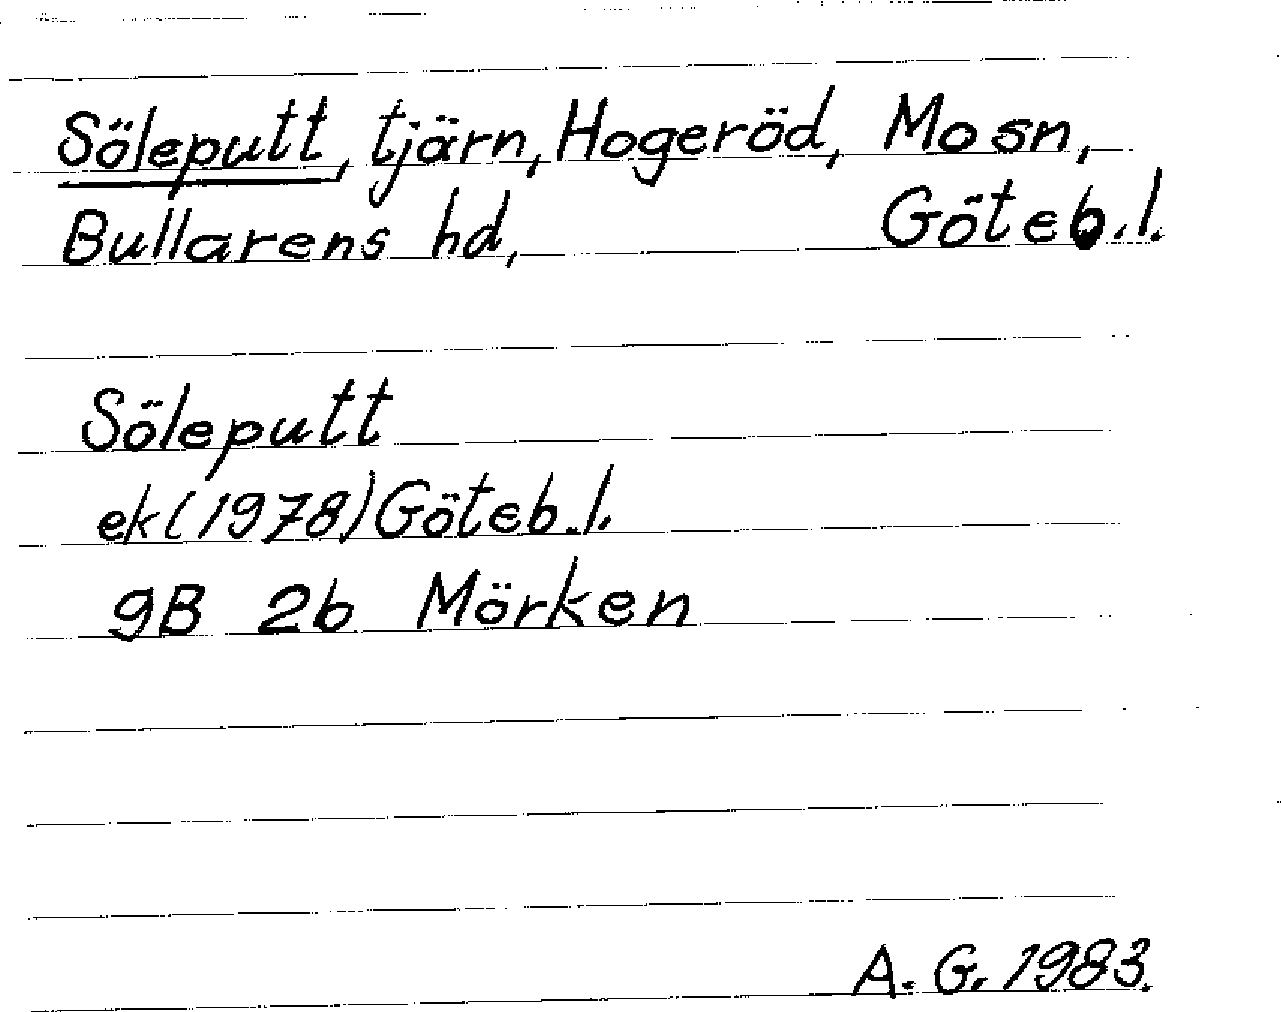 Söleputt, tjärn, Hogeröd, Mo sn,
Bullarens hd, Göteb.l.
Söleputt
ek(1978)Göteb.l.
9B 2b Mörken
A. G. 1983.